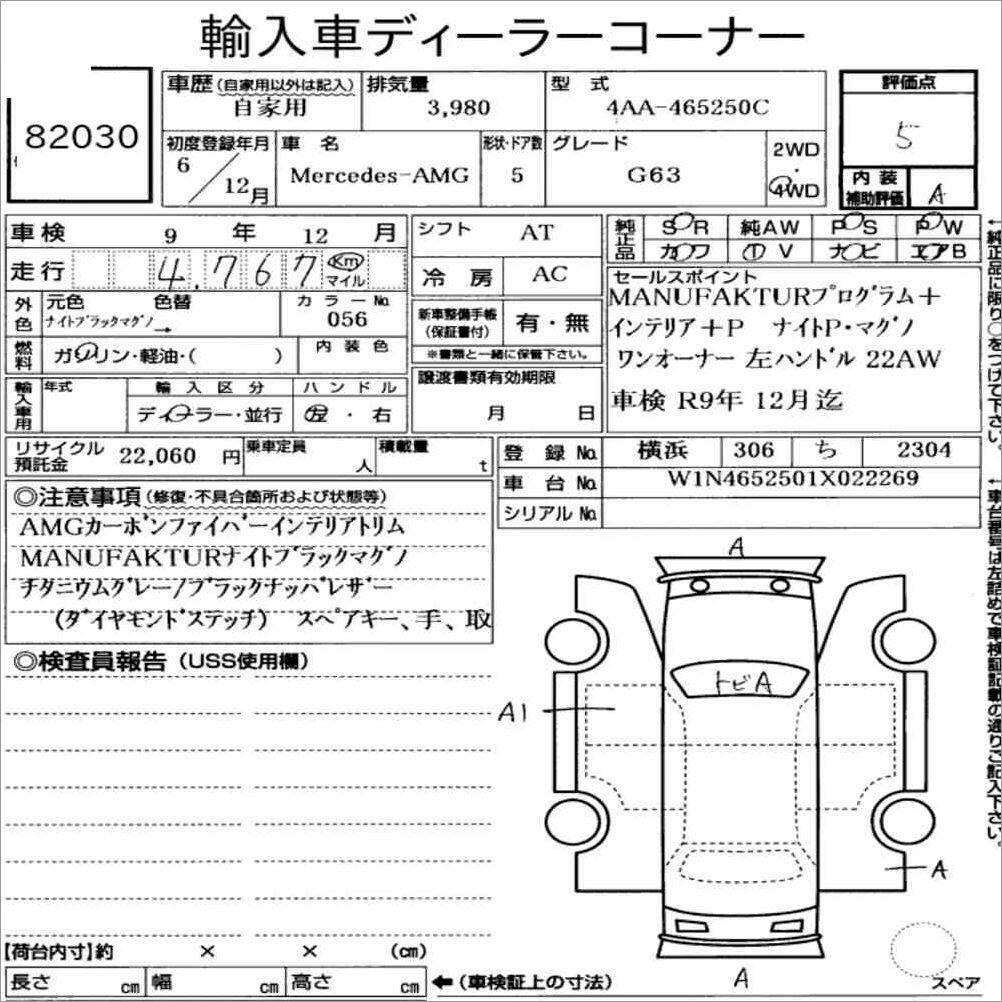 輸入車ディーラーコーナー
82030
車歴(自家用以外は記入) 自家用
排気量 3,980
型式 4AA-465250C
評価点 5
初度登録年月 6/12月
車名 Mercedes-AMG
形状・ドア数 5
グレード G63
2WD
4WD
内装補助評価 A
車検 9年 12月
走行 4,767 Km マイル
シフト AT
冷房 AC
純正品 SR 純AW PS PW
カワ TV ナビ エアB
外色 元色 色替 カラーNo.
ナイトブラックマグノ→ 056
燃料 ガソリン・軽油・( ) 内装色
新車整備手帳(保証書付) 有・無
※書類と一緒に保管下さい。
セールスポイント
MANUFAKTURプログラム+
インテリア+P ナイトP・マグノ
ワンオーナー 左ハンドル 22AW
車検 R9年 12月迄
輸入車用 年式 輸入区分 ハンドル
ディーラー・並行 左・右
譲渡書類有効期限
月 日
リサイクル預託金 22,060円
乗車定員 人
積載量 t
登録No. 横浜 306 ち 2304
車台No. W1N4652501X022269
シリアルNo.
◎注意事項(修復・不具合箇所および状態等)
AMGカーボンファイバーインテリアトリム
MANUFAKTURナイトブラックマグノ
チタニウムグレー/ブラックナッパレザー
(ダイヤモンドステッチ) スペアキー、手、取
◎検査員報告(USS使用欄)
A
トビA
A1
A
A
スペア
【荷台内寸】約 × × (cm)
長さ cm 幅 cm 高さ cm ←(車検証上の寸法)
←純正品に限り○をつけて下さい。
←車台番号は左詰めで車検証記載の通りご記入下さい。